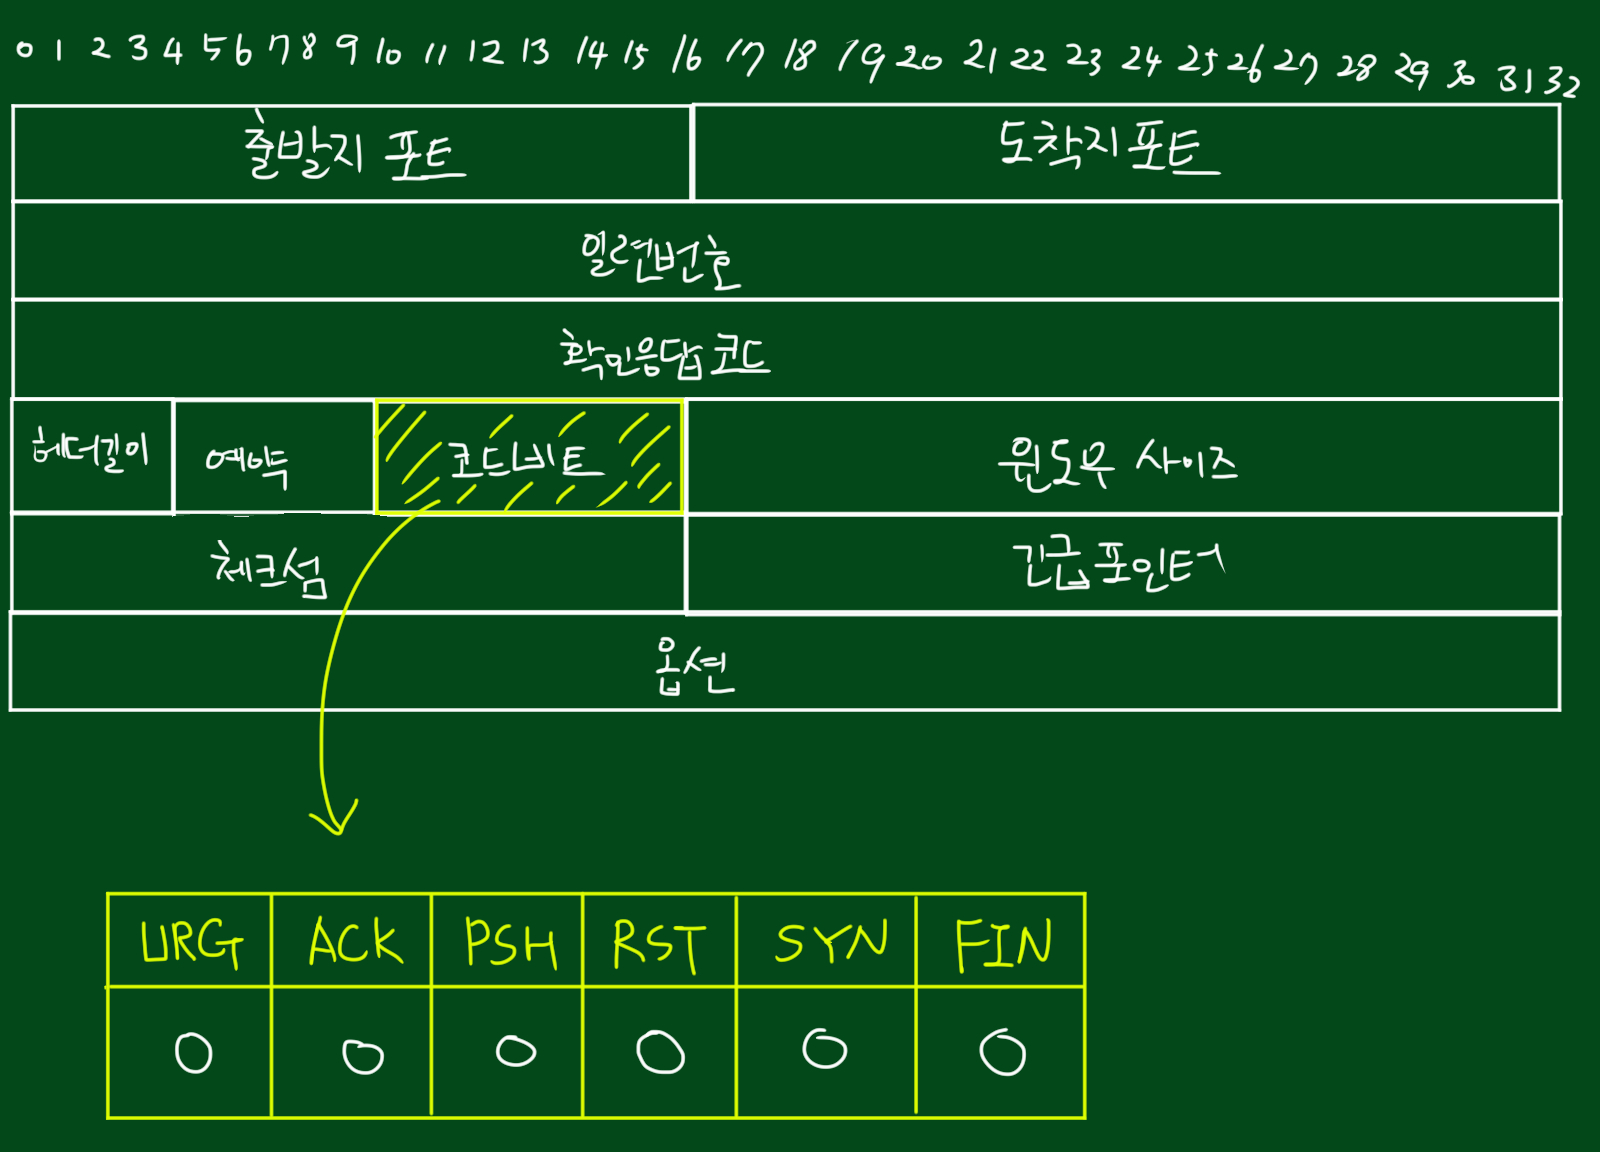 0 1 2 3 4 5 6 7 8 9 10 11 12 13 14 15 16 17 18 19 20 21 22 23 24 25 26 27 28 29 30 31 32
출발지 포트 도착지 포트
일련번호
확인응답 코드
헤더길이 예약 코드비트 윈도우 사이즈
체크섬 긴급 포인터
옵션
URG ACK PSH RST SYN FIN
0 0 0 0 0 0